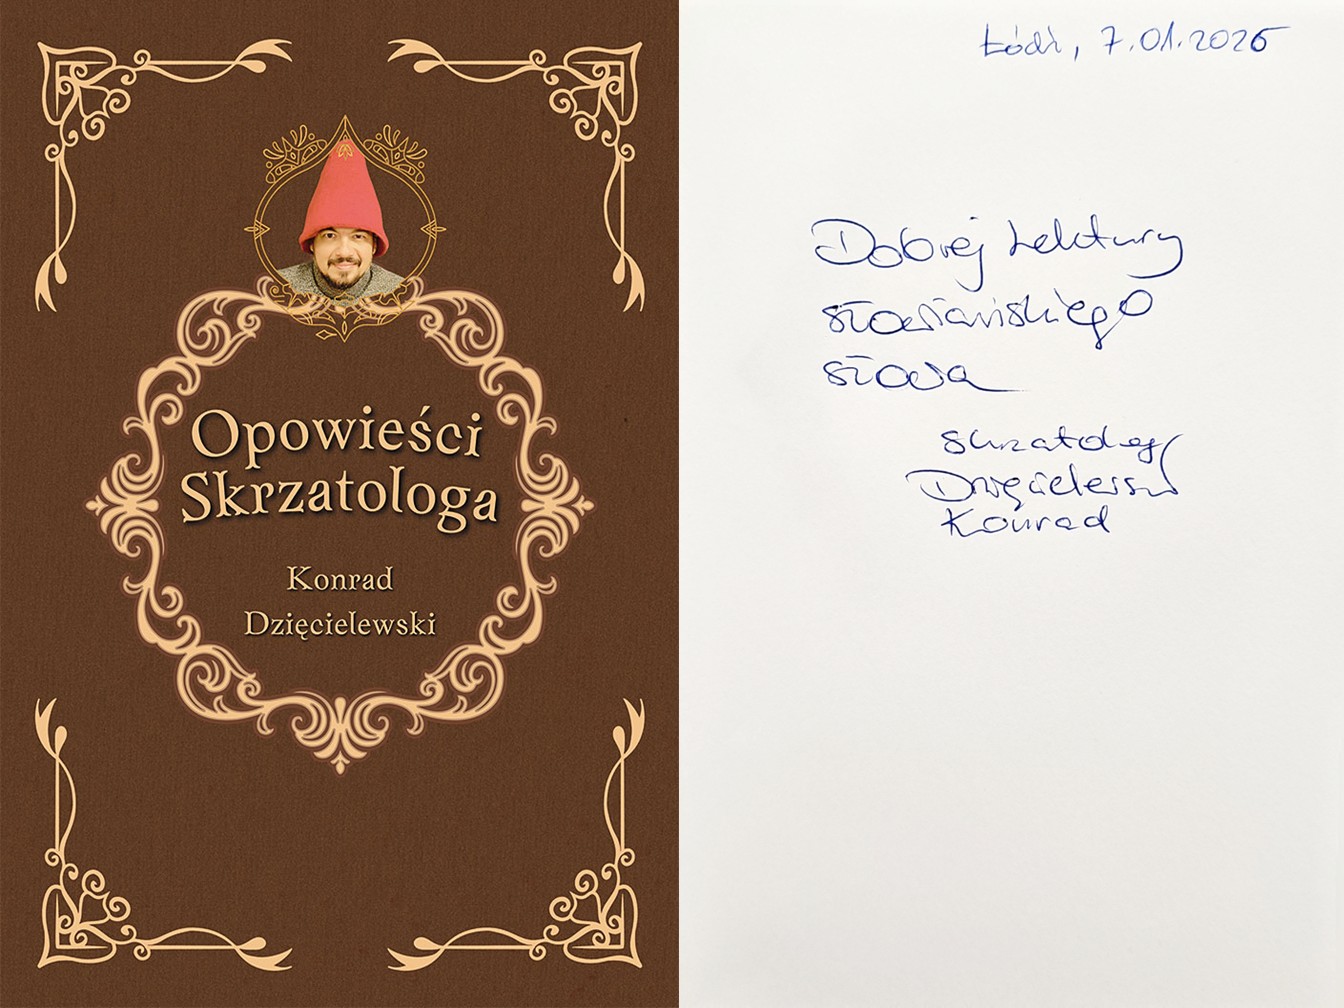 Opowieści
Skrzatologa
Konrad
Dzięcielewski
Łódź, 7.01.2026
Dobrej Lektury
słowiańskiego
słowa
skrzatolog
Dzięcielewski
Konrad